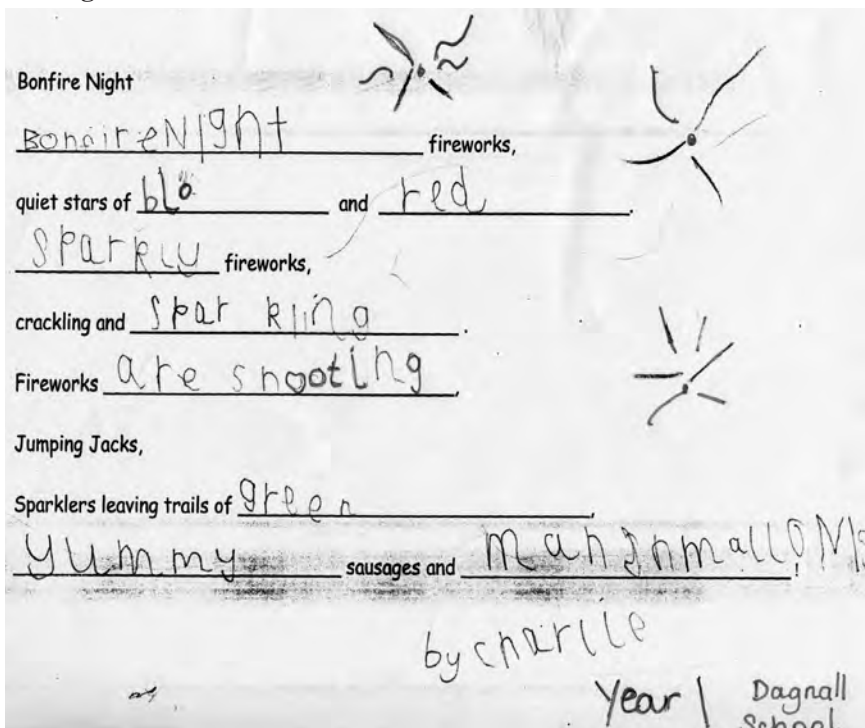 Bonfire Night
BonfireNIght fireworks,
quiet stars of blo and red.
Sparkly fireworks,
crackling and sparkling.
Fireworks are shooting,
Jumping Jacks,
Sparklers leaving trails of green,
yummy sausages and marshmallows!
by charlie
Year 1
Dagnall
School